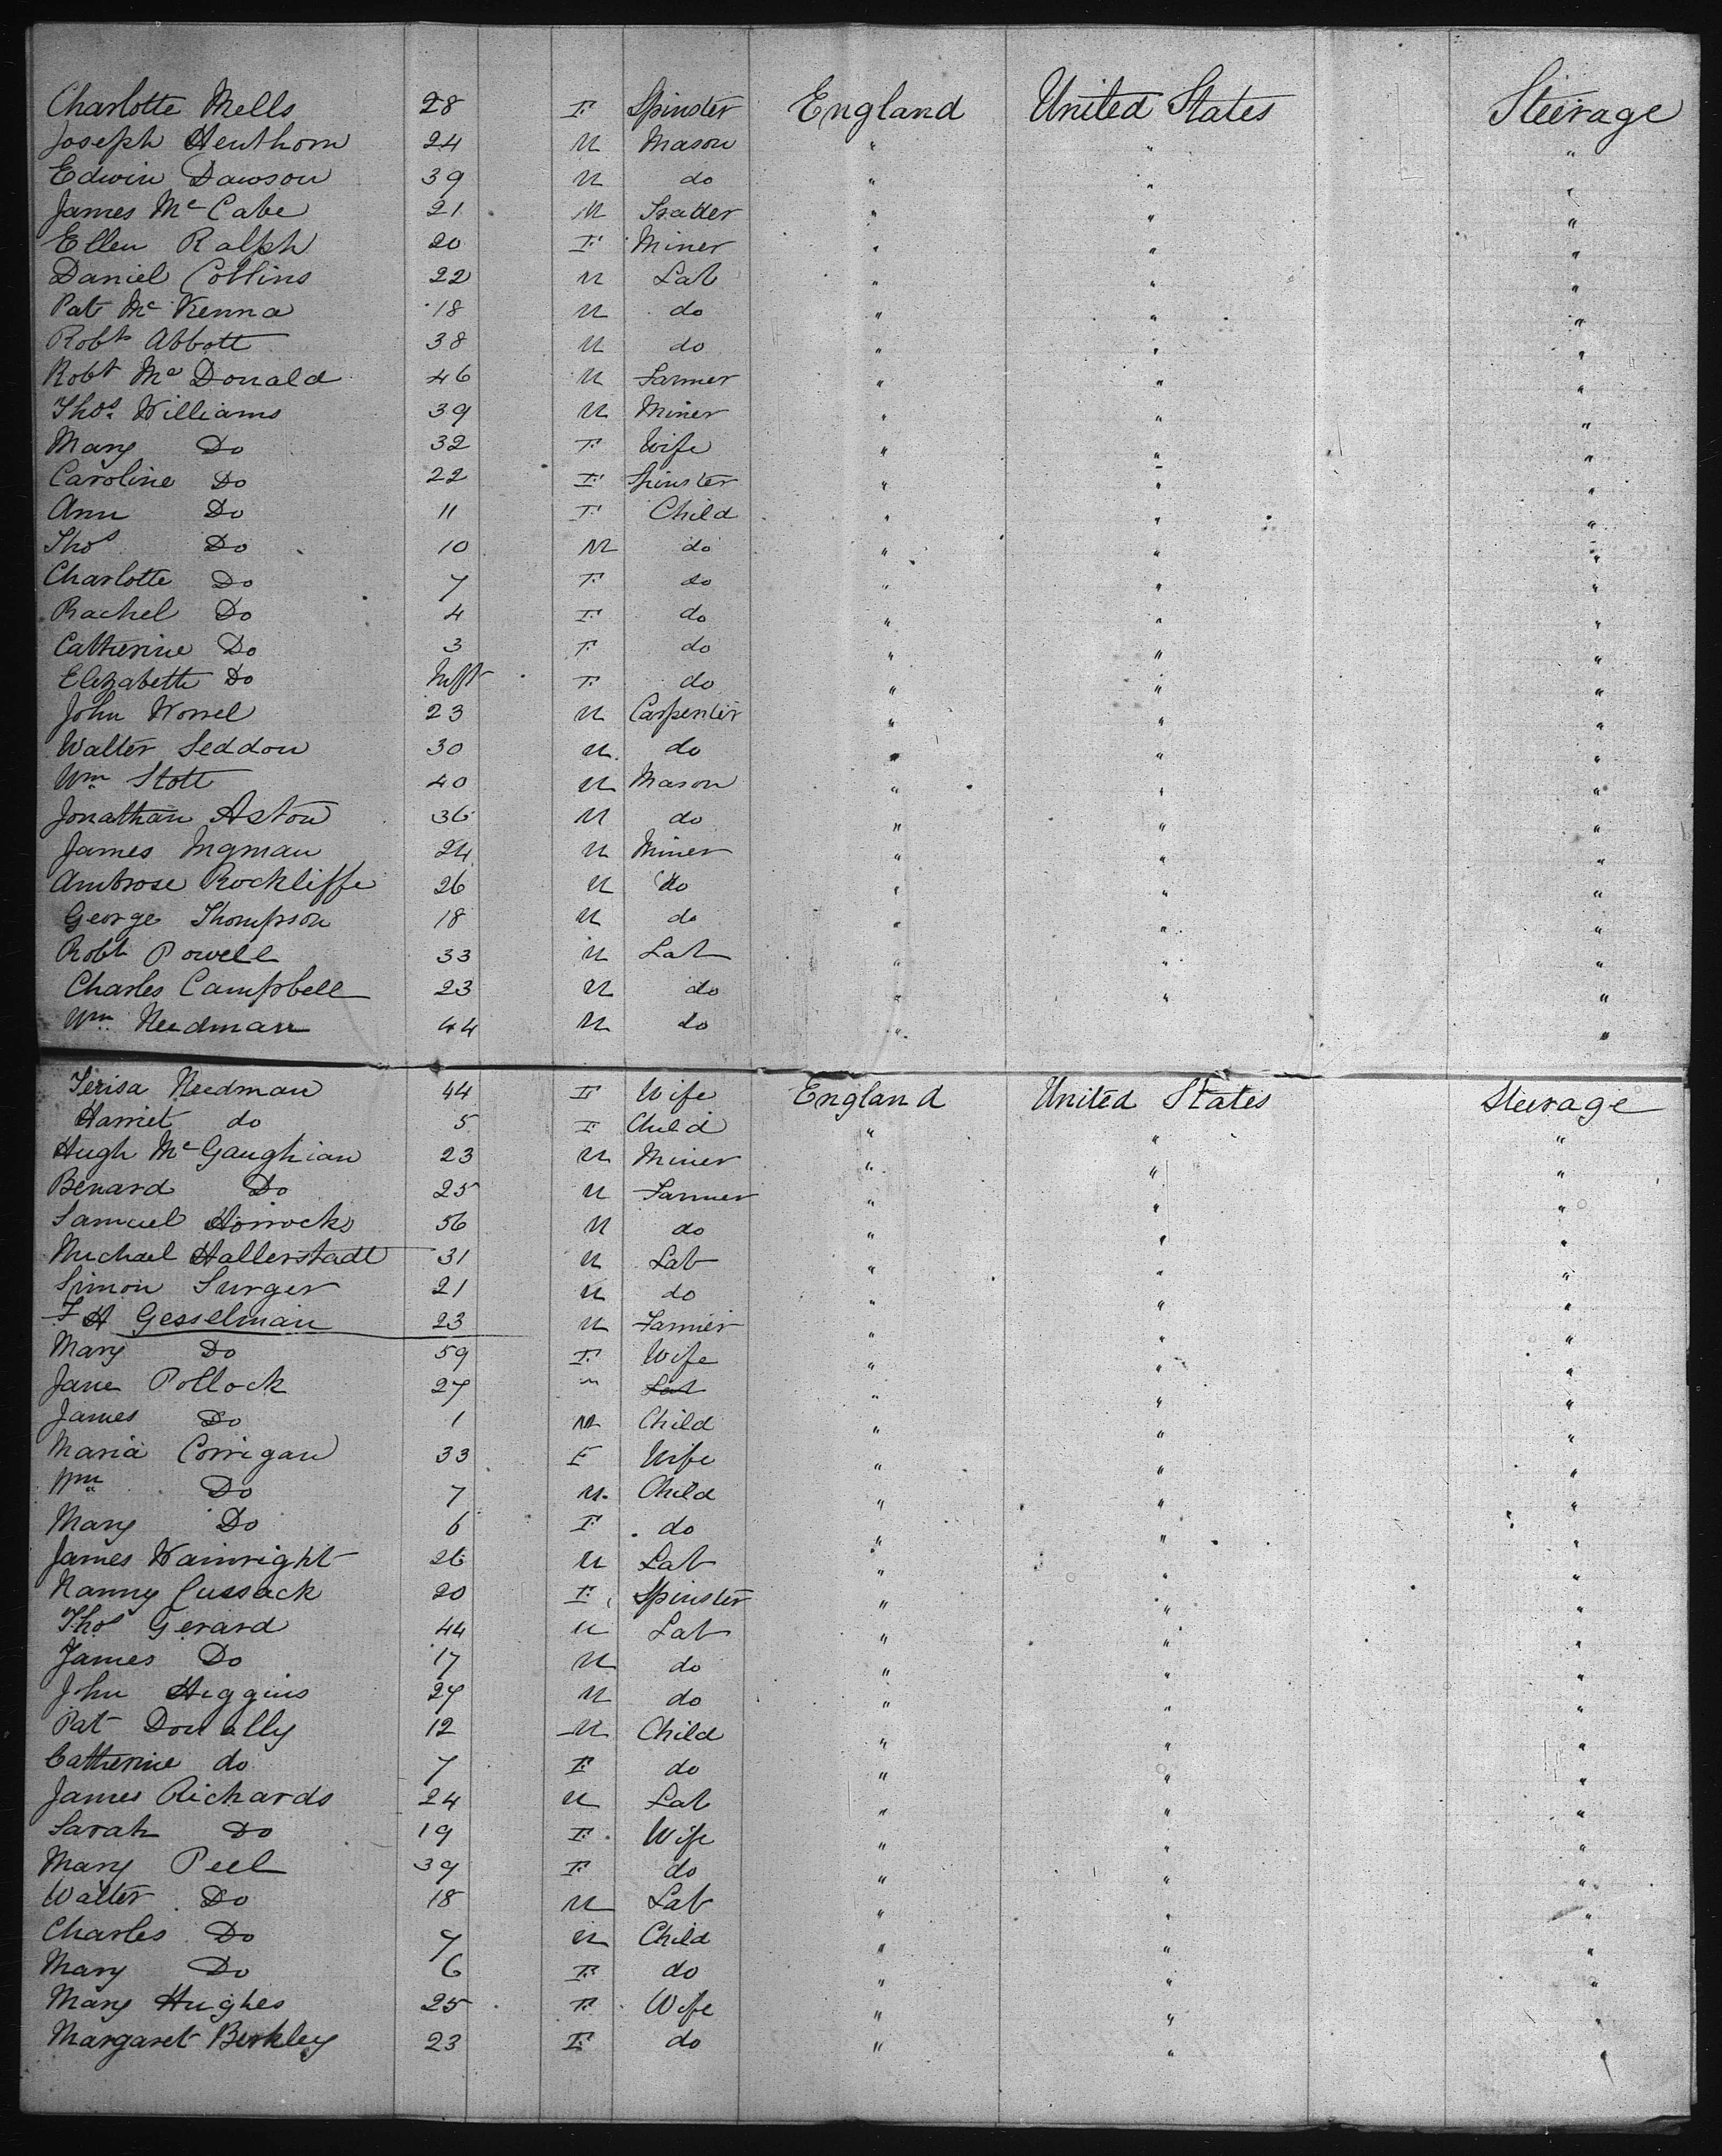 Charlotte Mells 28 F Spinster England United States Steerage
Joseph Henthorn 24 M Mason " " "
Edwin Dawson 39 M do " " "
James Mc Cabe 21 M " " "
Ellen Ralph 20 F Miner " " "
Daniel Collins 22 M Lab " " "
Pat Mc Kenna 18 M do " " "
Robt Abbott 38 M do " " "
Robt Mc Donald 46 M Farmer " " "
Thos. Williams 39 M Miner " " "
Mary Do 32 F Wife " " "
Caroline Do 22 F Spinster " " "
Ann Do 11 F Child " " "
Thos Do 10 M do " " "
Charlotte Do 7 F do " " "
Rachel Do 4 F do " " "
Catherine Do 3 F do " " "
Elizabeth Do Inft F do " " "
John Worrel 23 M Carpenter " " "
Walter Seddon 30 M do " " "
Wm Stott 40 M Mason " " "
Jonathan Aston 36 M do " " "
James Ingman 24 M Miner " " "
Ambrose Rockliffe 26 M do " " "
George Thompson 18 M do " " "
Robt Powell 33 M Lab " " "
Charles Campbell 23 M do " " "
Wm Needman 44 M do " " "
Terisa Needman 44 F Wife England United States Steerage
Harriet do 5 F Child " " "
Hugh Mc Gaughian 23 M Miner " " "
Benard Do 25 M Farmer " " "
Samuel Horrocks 56 M do " " "
Michael Hallerstadt 31 M Lab " " "
Simon Surger 21 M do " " "
F H Gesselman 23 M Farmer " " "
Mary Do 59 F Wife " " "
Jane Pollock 27 " Lab " " "
James Do 1 M Child " " "
Maria Corrigan 33 F Wife " " "
Wm Do 7 M Child " " "
Mary Do 6 F do " " "
James Wainright 26 M Lab " " "
Nanny Cussack 20 F Spinster " " "
Thos Gerard 44 M Lab " " "
James Do 17 M do " " "
John Higgins 27 M do " " "
Pat Donally 12 M Child " " "
Catherine do 7 F do " " "
James Richards 24 M Lab " " "
Sarah Do 19 F Wife " " "
Mary Peel 39 F do " " "
Walter Do 18 M Lab " " "
Charles Do 9 M Child " " "
Mary Do 6 F do " " "
Mary Hughes 25 F Wife " " "
Margaret Berkley 23 F do " " "